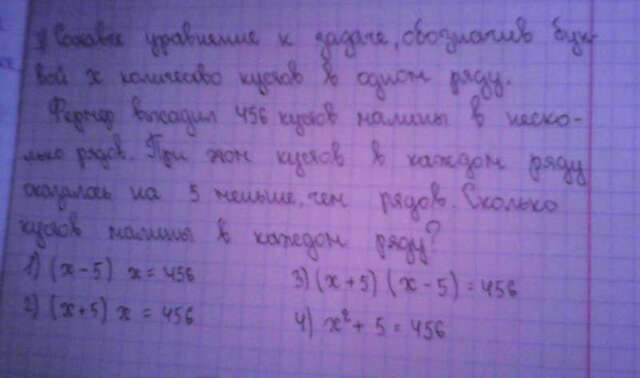 Составьте уравнение к задаче, обозначив бук-
вой x количество кустов в одном ряду.
Фермер высадил 456 кустов малины в неско-
лько рядов. При этом кустов в каждом ряду
оказалось на 5 меньше, чем рядов. Сколько
кустов малины в каждом ряду?
1) (x-5) x = 456 3) (x+5) (x-5) = 456
2) (x+5) x = 456 4) x² + 5 = 456